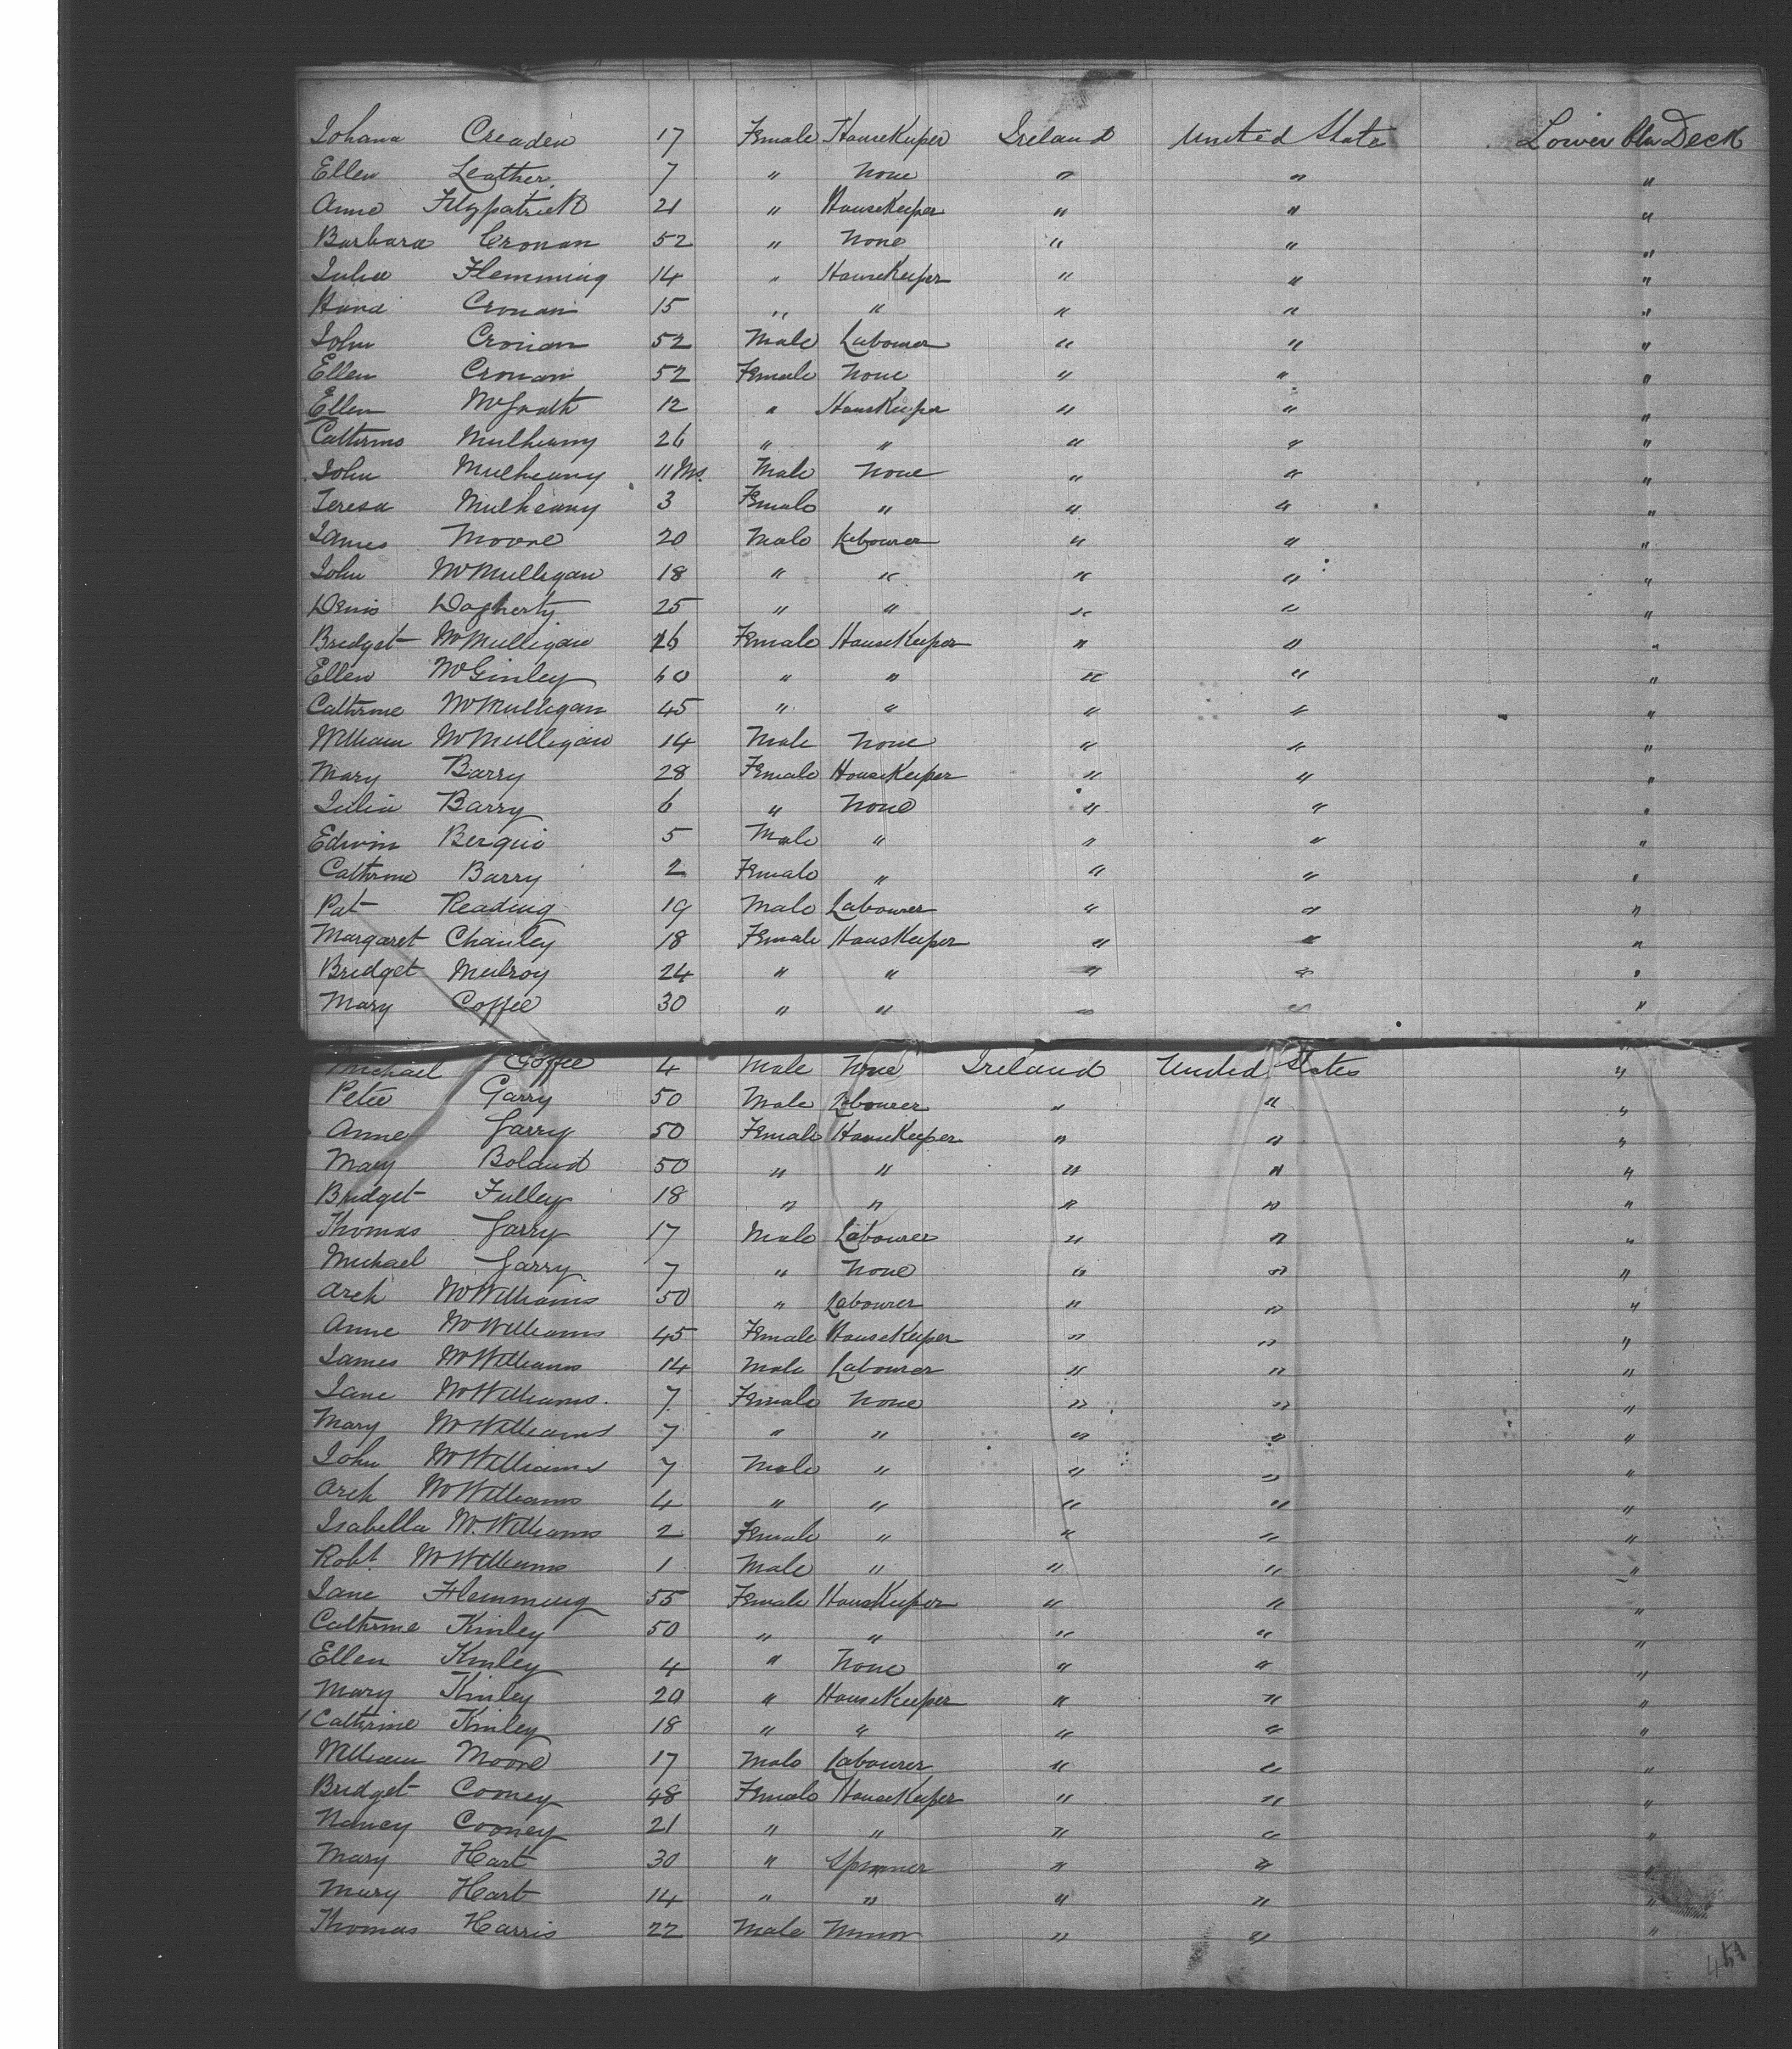 Johana Creaden 17 Female HouseKeeper Ireland United State Lower Deck
Ellen Leather 7 " None " " "
Anne Fitzpatrick 21 " HouseKeeper " " "
Barbara Cronan 52 " None " " "
Julia Flemming 14 " HouseKeeper " " "
Hana Cronan 15 " " " " "
John Cronan 52 Male Labourer " " "
Ellen Cronan 52 Female None " " "
Ellen McGrath 12 " HouseKeeper " " "
Catterine Mulheany 26 " " " " "
John Mulheany 11 Ms. Male None " " "
Teresa Mulheany 3 Female " " " "
James Moore 20 Male Labourer " " "
John McMulligan 18 " " " " "
Denis Dogherty 25 " " " " "
Bridget McMulligan 26 Female HouseKeeper " " "
Ellen McGinley 60 " " " " "
Cathrine McMulligan 45 " " " " "
William McMulligan 14 Male None " " "
Mary Barry 28 Female HouseKeeper " " "
Julia Barry 6 " None " " "
Edwin 5 Male " " " "
Cathrine Barry 2 Female " " " "
Pat Reading 19 Male Labourer " " "
Margaret Chanley 18 Female HousKeeper " " "
Bridget Mulroy 24 " " " " "
Mary Coffee 30 " " " " "
Michael Coffee 4 Male None Ireland United States "
Peter Garry 50 Male Labourer " " "
Anne Garry 50 Female HouseKeeper " " "
Mary Boland 50 " " " " "
Bridget Fulley 18 " " " " "
Thomas Garry 17 Male Labourer " " "
Michael Garry 7 " None " " "
Arch McWilliams 50 " Labourer " " "
Anne McWilliams 45 Female HouseKeeper " " "
James McWilliams 14 Male Labourer " " "
Jane McWilliams 7 Female None " " "
Mary McWilliams 7 " " " " "
John McWilliams 7 Male " " " "
Arch McWilliams 4 " " " " "
Isabella McWilliams 2 Female " " " "
Robt McWilliams 1 Male " " " "
Jane Flemming 55 Female HouseKeeper " " "
Cathrine Kinley 50 " " " " "
Ellen Kinley 4 " None " " "
Mary Kinley 20 " HouseKeeper " " "
Cathrine Kinley 18 " " " " "
William Moore 17 Male Labourer " " "
Bridget Cooney 48 Female HouseKeeper " " "
Nancy Cooney 21 " " " " "
Mary Hart 30 " Spinner " " "
Mary Hart 14 " " " " "
Thomas Harris 22 Male Minor " " "